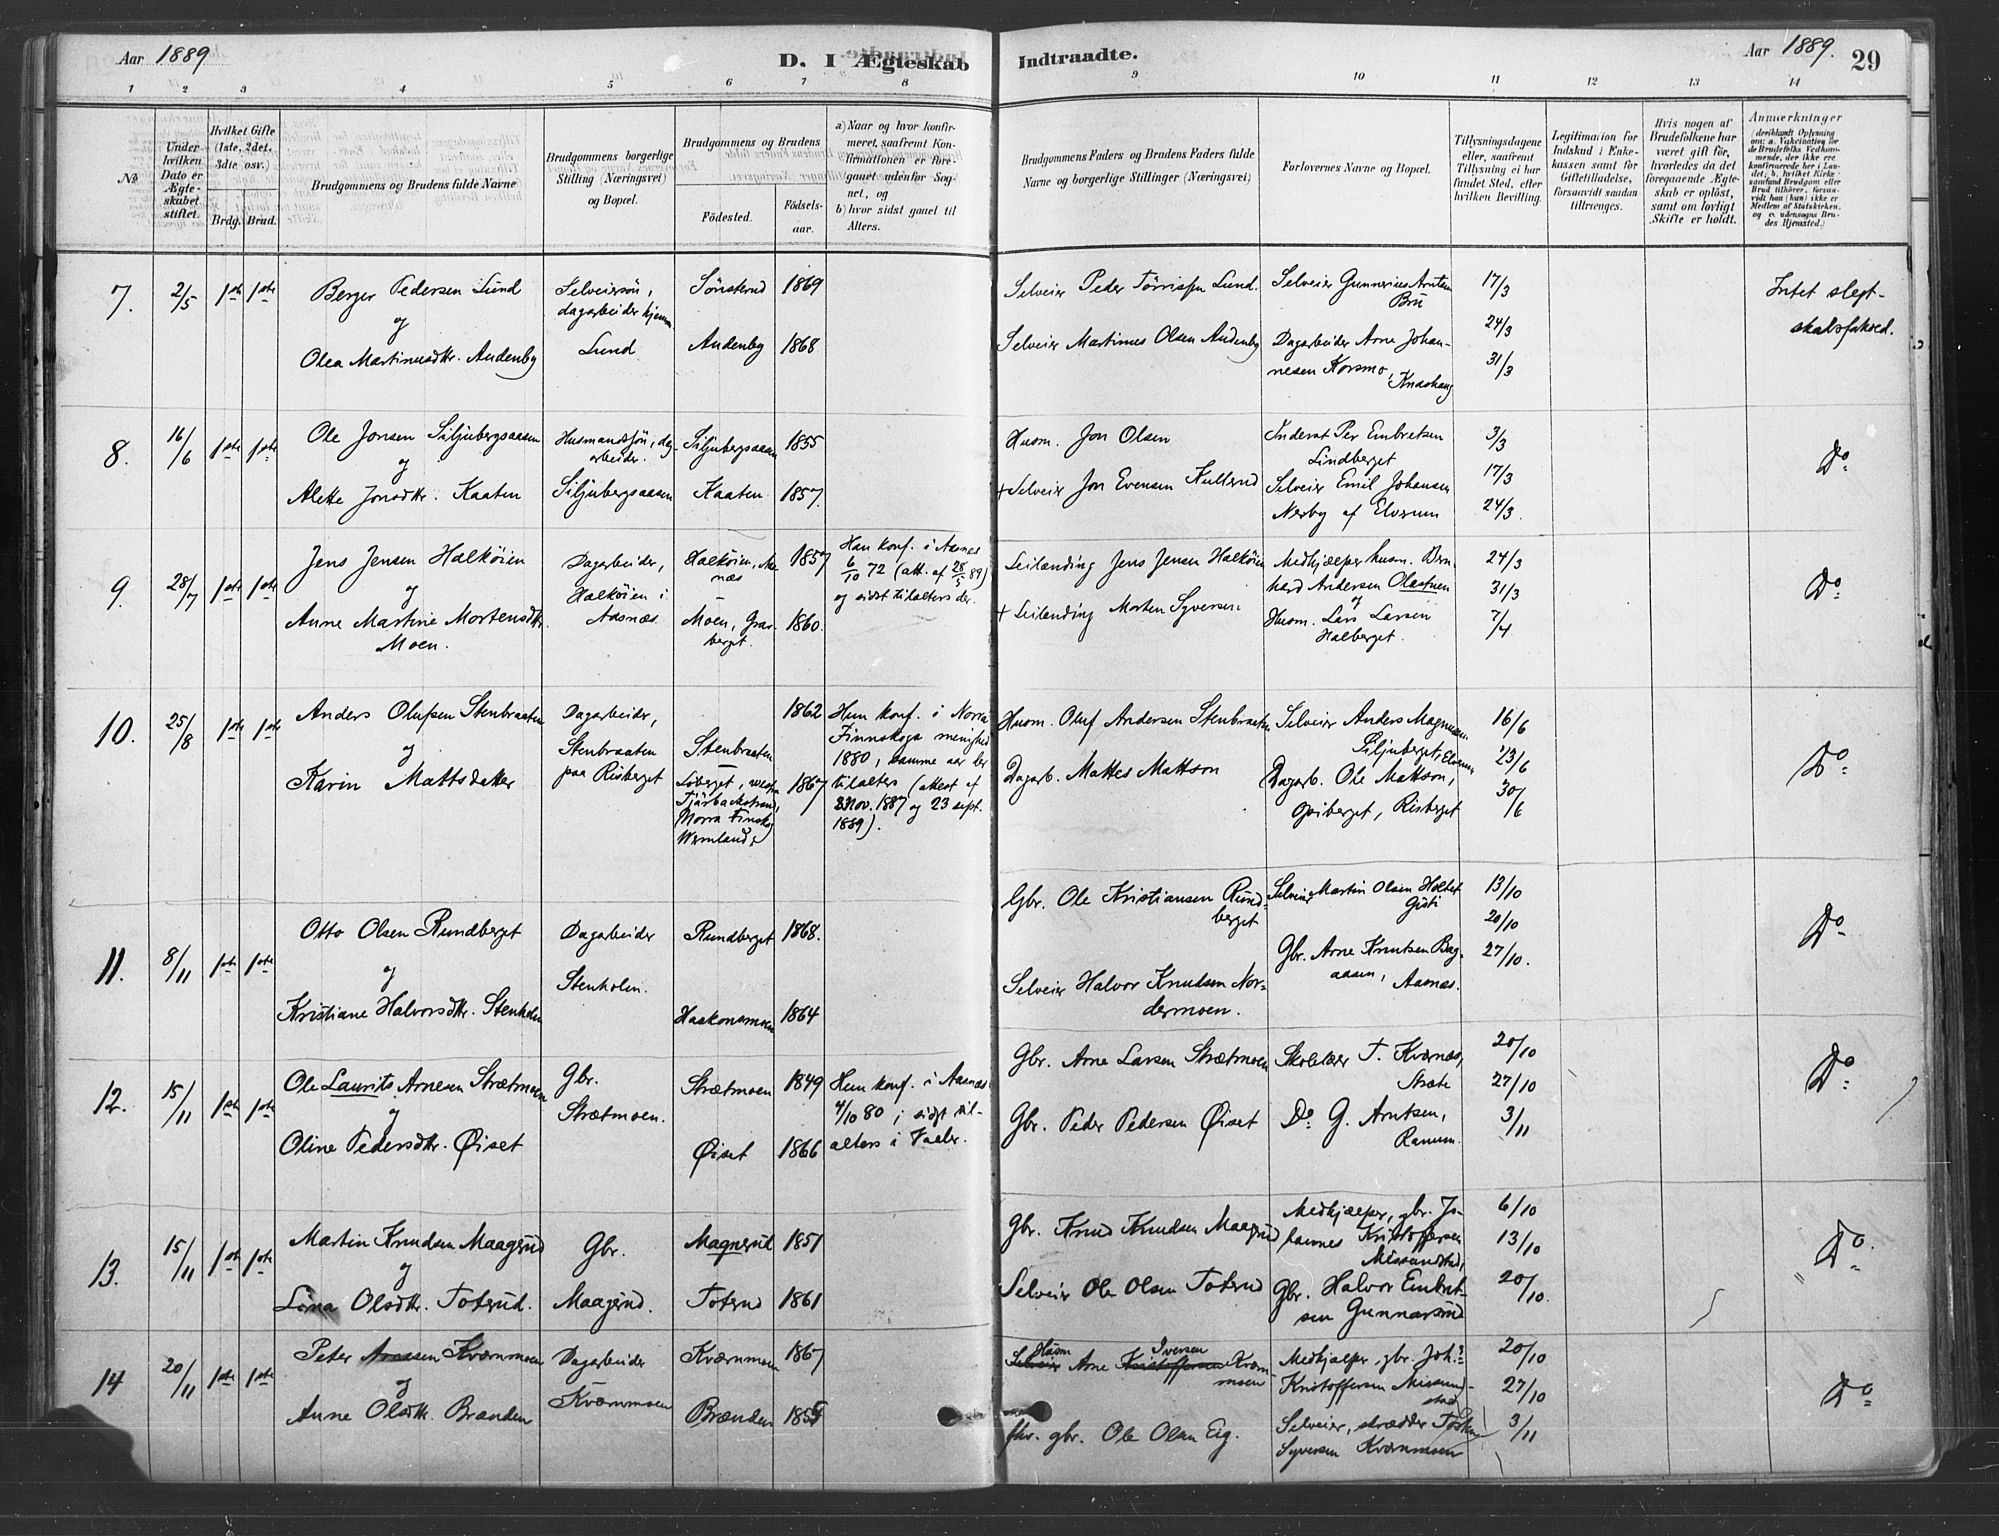 Aar 1889
D. I Ægteskab
Indtraadte.
Aar 1889.
29
1 2 3 4 5 6 7 8 9 10 11 12 13 14
No
Under hvilken Dato er Ægteskabet stiftet.
Hvilket Gifte (1ste, 2det, 3die osv.)
Brdg. Brud.
Brudgommens og Brudens fulde Navne
Brudgommens borgerlige Stilling (Næringsvei) og Bopæl.
Brudgommens og Brudens
Födested.
Födselsaar.
a) Naar og hvor konfirmeret, saafremt Konfirmationen er foregaaet udenfor Sognet, og
b) hvor sidst gaaet til Alters.
Brudgommens Faders og Brudens Faders fulde Navne og borgerlige Stillinger (Næringsvei)
Forlovernes Navne og Bopæl.
Tillysningsdagene eller, saafremt Tillysning ei har fundet Sted, efter hvilken Bevilling.
Legitimation for Indskud i Enkekassen samt for Giftetilladelse, forsaavidt saadan tiltrænges.
Hvis nogen af Brudefolkene har været gift för, hvorledes da det foregaaende Ægteskab er oplöst, samt om lovligt Skifte er holdt.
Anmerkninger
(deriblandt Oplysning om: a. Vaccination for de Brudefolks Vedkommende, der ikke ere konfirmerede her i Landet; b. hvilket Kirkesamfund Brudgom eller Brud tilhörer, forsaavidt han (hun) ikke er Medlem af Statskirken, og c. udensogns Brudes Hjemsted.)
7.
2/5
1ste 1ste
Berger Pedersen Lund
og
Olea Martinusdtr. Andenby
Selveiersön,
dagarbeider hjemme
Lund
Sönsterud
Andenby
1869
1868
Selveier Peder Törrissen Lund.
Selveier Martinus Olsen Andenby
Selveier Gunnerius Arntsen
Bru
Dagarbeider Arne Johan-
nesen Korsmo,
17/3
24/3
31/3
Intet slegt-
8.
16/6
1ste 1ste
Ole Jonsen Siljubergsaasen
og
Alette Jonsdtr. Kaaten
Husmandssön, dag-
arbeider.
Siljubergsaasen
Siljubergsaasen
Kaaten
1855
1857.
Husm. Jon Olsen
+ Selveier Jon Evensen Kullerud
Inderst Per Embretsen
Lindberget
Selveier Emil Johansen
Nerby af Elverum
3/3
17/3
24/3.
Do
9.
28/7
1ste 1ste
Jens Jensen Halköien
og
Anne Martine Mortensdtr.
Moen.
Dagarbeider,
Halköien i
Aasnæs.
Halköien, Aas-
næs
Moen, Grav-
berget.
1857
1860.
Han konf. i Aasnes
6/10 72 (att. af 28/5 89)
og sidst tilalters der.
Leilænding Jens Jensen Halköien
+ Leilænding Morten Syversen
Medhjælper husm. Bern-
hard Andersen Olastuen
og
Husm. Lars Larsen
Halberget.
24/3
31/3
7/4
Do
10.
25/8
1ste 1ste
Anders Olufsen Stenbraaten
og
Karin Mattsdatter
Dagarbeider,
Stenbraaten
paa Risberget
Stenbraaten
Löberget, vestra
Tjärbackstrand,
Norra Finsk.
Wermland.
1862
1867
Hun konf. i Norra
Finnskoga menighed
1880, samme aar der
tilalters (attest af
2 Nov. 1887 og 23 sept.
1889).
Husm. Oluf Andersen Stenbraaten
Dagarb. Mattes Mattson
Selveier Anders Magnussen
Siljuberget, Elverum
Dagarb. Ole Mattson,
Risberget
16/6
23/6
30/6
Do
11.
8/11
1ste 1ste
Otto Olsen Rundberget
og
Kristiane Halvorsdtr. Stenholen
Dagarbeider
Stenholen.
Rundberget
Haakonsmoen
1868.
1864
Gbr. Ole Kristiansen Rund-
berget
Selveier Halvor Knudsen Nor-
dermoen.
Selveier Martin Olsen
Gbr. Arne Knutsen Bag-
aasen,
Aasnæs.
13/10
20/10
27/10.
Do
12.
15/11
1ste 1ste
Ole Laurits Arnesen Strætmoen
og
Oline Pedersdtr. Øiset
Gbr.
Strætmoen.
Strætmoen
Øiset
1849
1866
Hun konf. i Aasnæs
4/10 80; sidst til-
alters i Vaaler.
Gbr. Arne Larsen Strætmoen
Gbr. Peder Pedersen Øiset
Skolelærer T. Kværnæs,
Stræte
Do G. Arntsen,
Ranum.
20/10
27/10
3/11
Do
13.
15/11
1ste 1ste
Martin Knudsen Maagerud
og
Lina Olsdtr. Toterud.
Gbr.
Maagerud.
Magnerud
Toterud
1851
1861
Gbr. Knud Knudsen Maagerud
Selveier Ole Olsen Toterud
Medhjælper, gbr. Jo-
hannes Kristoffersen
Missundstad,
Gbr. Halvor Embret-
sen Gunnarsrud
6/10
13/10
20/10.
Do.
14
20/11
1ste 1ste
Peter Arnesen Kværnmoen
og
Anne Olsdtr. Brænden
Dagarbeider
Kværnmoen
Kværnmoen
Brænden
1867
1855
Husm Iversen
Selveier Arne Kristoffersen Kværn-
moen
fhv. gbr. Ole Olsen Eig.
Medhjælper, gbr. Joh.
Kristoffersen Missund-
stad
Selveier, skrædder
Syversen Kværnmoen
20/10
27/10
3/11
Do